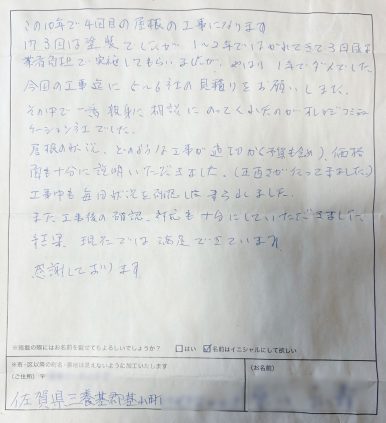 この10年で4回目の屋根の工事になります
内3回は塗装でしたが 1〜2年ではがれてきて3回目は
業者負担で実施してもらいましたが、やはり1年でダメでした。
今回の工事迄に5〜6社の見積りをお願いしました。
その中で一番親身に相談にのってくれたのがオレンジコミュニ
ケーション社でした。
屋根の状況、どのような工事が適切か(予算も含め)、価格
面も十分に説明いただきました。
工事中も毎日状況を
また工事後の確認、対応も十分にしていただきました。
結果 現在では満足できています
感謝しております
※掲載の際にはお名前を載せてもよろしいでしょうか? □はい ☑名前はイニシャルにして欲しい
※市・区以降の町名・番地は見えないように加工いたします
(ご住所) 〒 (お名前)
佐賀県三養基郡基山町